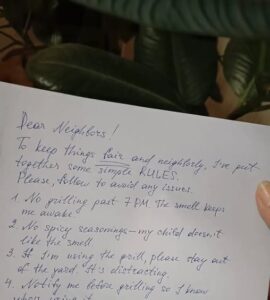 Dear Neighbors!
To keep things fair and neighborly, I've put
together some simple RULES.
Please, follow to avoid any issues.
1. No grilling past 7 PM. The smell keeps
me awake
2. No spicy seasonings – my child doesn't
like the smell
3. If I'm using the grill, please stay out
of the yard. It's distracting.
4. Notify me before grilling so I know